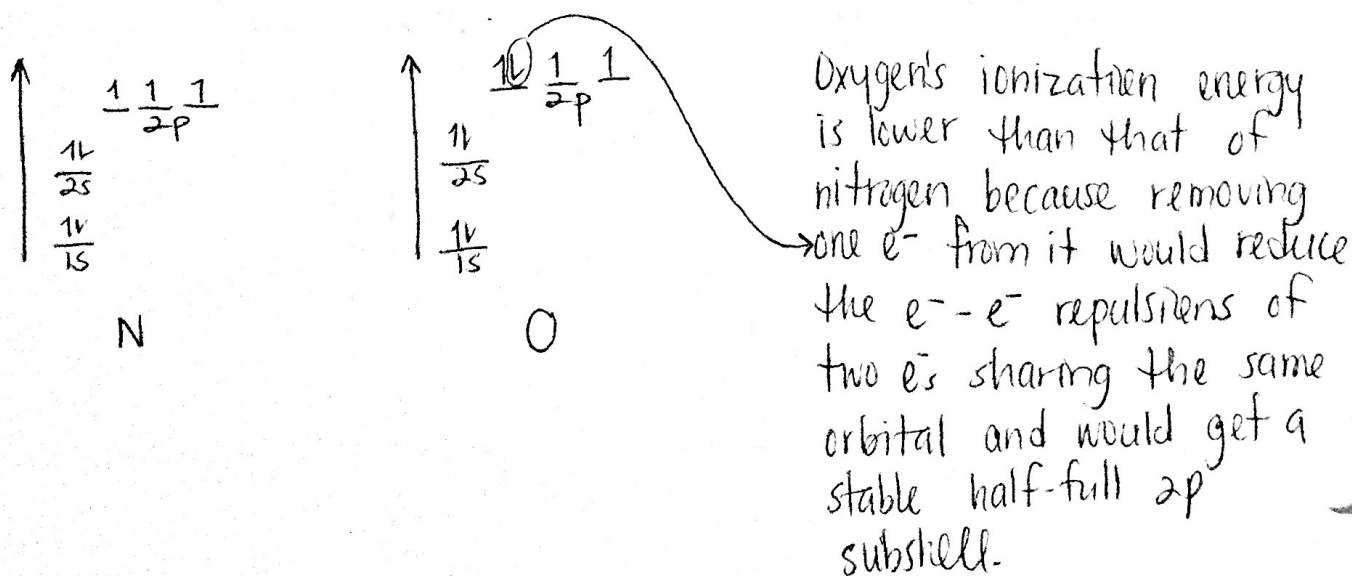 1 1 1
2p
1↓
2s
1↓
1s
N
1↓ 1 1
2p
1↓
2s
1↓
1s
O
Oxygen's ionization energy
is lower than that of
nitrogen because removing
one e⁻ from it would reduce
the e⁻-e⁻ repulsions of
two e⁻s sharing the same
orbital and would get a
stable half-full 2p
subshell.